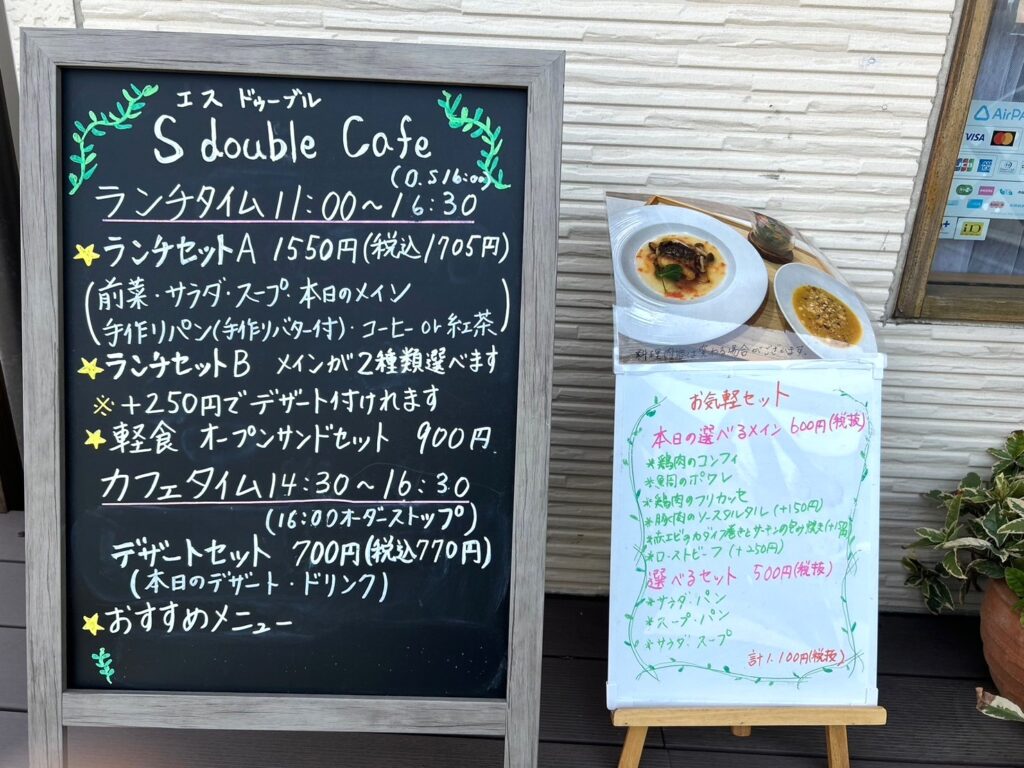 エス ドゥーブル
S double Cafe
(O.S 16:00)
ランチタイム 11:00～16:30
ランチセットA 1550円(税込1705円)
(前菜・サラダ・スープ・本日のメイン
手作りパン(手作りバター付)・コーヒー or 紅茶)
ランチセットB メインが2種類選べます
※+250円でデザート付けれます
軽食 オープンサンドセット 900円
カフェタイム 14:30～16:30
(16:00オーダーストップ)
デザートセット 700円(税込770円)
(本日のデザート・ドリンク)
おすすめメニュー
料理内容は変わる場合がございます。
お気軽セット
本日の選べるメイン 600円(税抜)
*鶏肉のコンフィ
*魚のポワレ
*鶏肉のフリカッセ
*豚肉のソースタルタル (+150円)
*赤エビのカダイフ巻きとサーモンの包み焼き
*ローストビーフ (+250円)
選べるセット 500円(税抜)
*サラダ・パン
*スープ・パン
*サラダ・スープ
計1.100円(税抜)
AirPA
VISA
JCB
iD